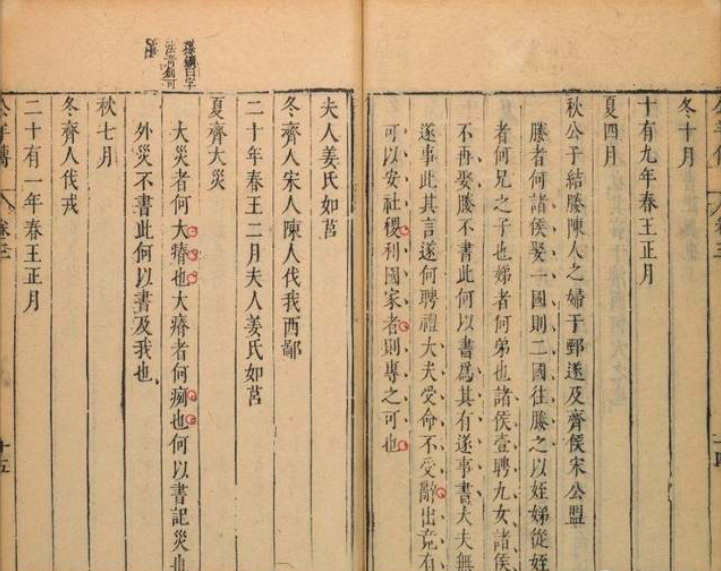 冬十月
十有九年春王正月
夏四月
秋公子結媵陳人之婦于鄄遂及齊侯宋公盟
媵者何諸侯娶一國則二國往媵之以姪娣從姪
者何兄之子也娣者何弟也諸侯壹聘九女諸侯
不再娶媵不書此何以書爲其有遂事書大夫無
遂事此其言遂何聘禮大夫受命不受辭出竟有
可以安社稷利國家者則專之可也
夫人姜氏如莒
冬齊人宋人陳人伐我西鄙
二十年春王二月夫人姜氏如莒
夏齊大災
孫鑛曰字
大災者何大瘠也大瘠者何㾐也何以書記災也
外災不書此何以書及我也
秋七月
冬齊人伐戎
二十有一年春王正月
公羊傳 卷三 十五